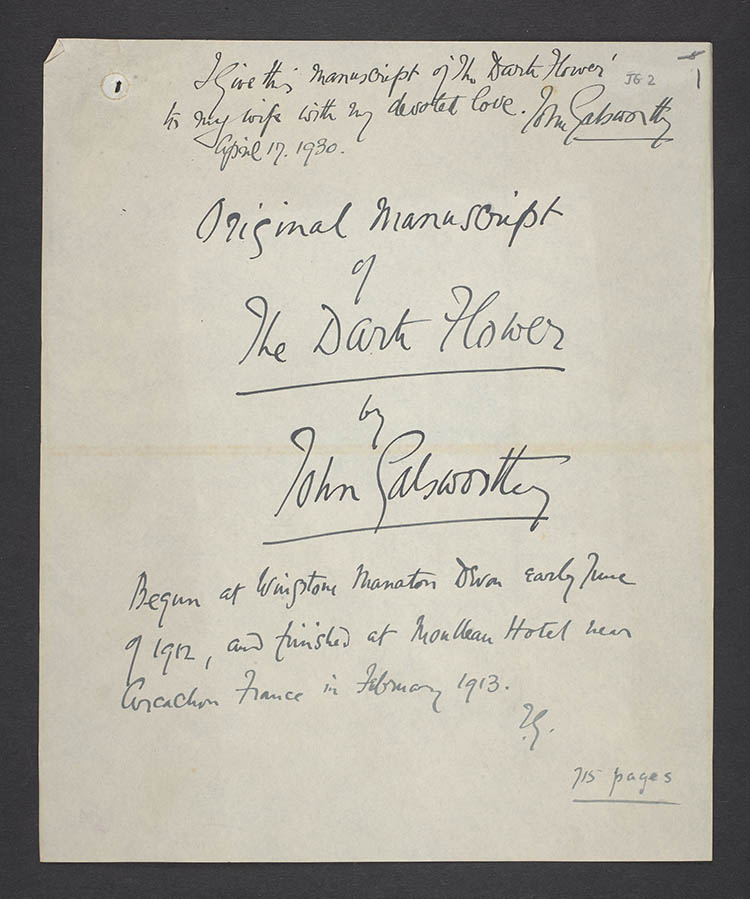 I give this manuscript of 'The Dark Flower'
JG 2
1
to my wife with my devoted love. John Galsworthy
April 17. 1930.
Original Manuscript
of
The Dark Flower
by
John Galsworthy
Begun at Wingstone Manaton Devon early June
of 1912, and finished at Moulleau Hotel near
Arcachon France in February 1913.
J.G.
715 pages